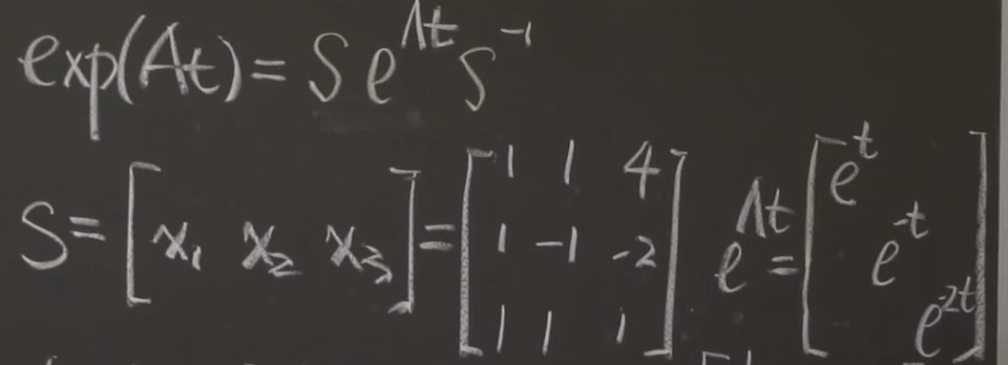 exp(At) = S e^{Λt} S^{-1}
S = [x₁ x₂ x₃] = [1 1 4; 1 -1 -2; 1 1 1] e^{Λt} = [e^{t} e^{-t} e^{-2t}]